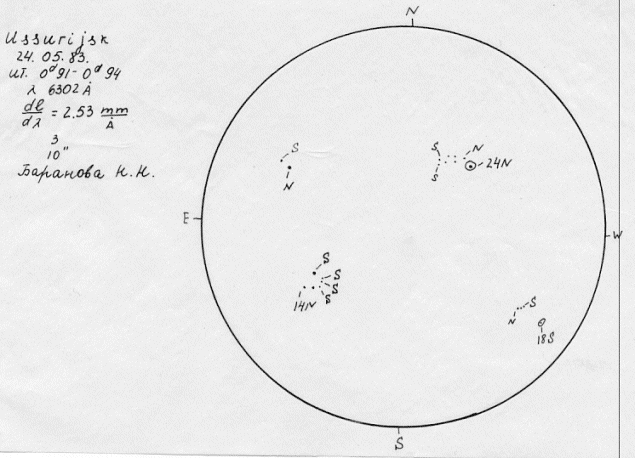 Ussurijsk
24. 05. 83.
UT. 0ᵈ91-0ᵈ94
λ 6302 Å
dl/dλ = 2.53 mm/Å
3
10"
Баранова Н.Н.
N
S
N
S
S
N
24N
E
W
S
S
S
S
14N
N
S
18S
S